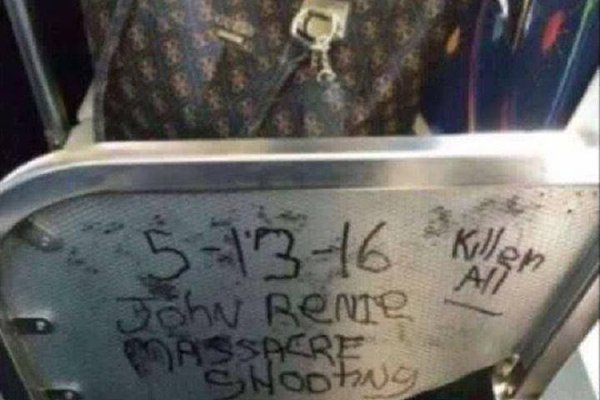 5-13-16
Killem
All
John Renie
MASSACRE
SHOOTING